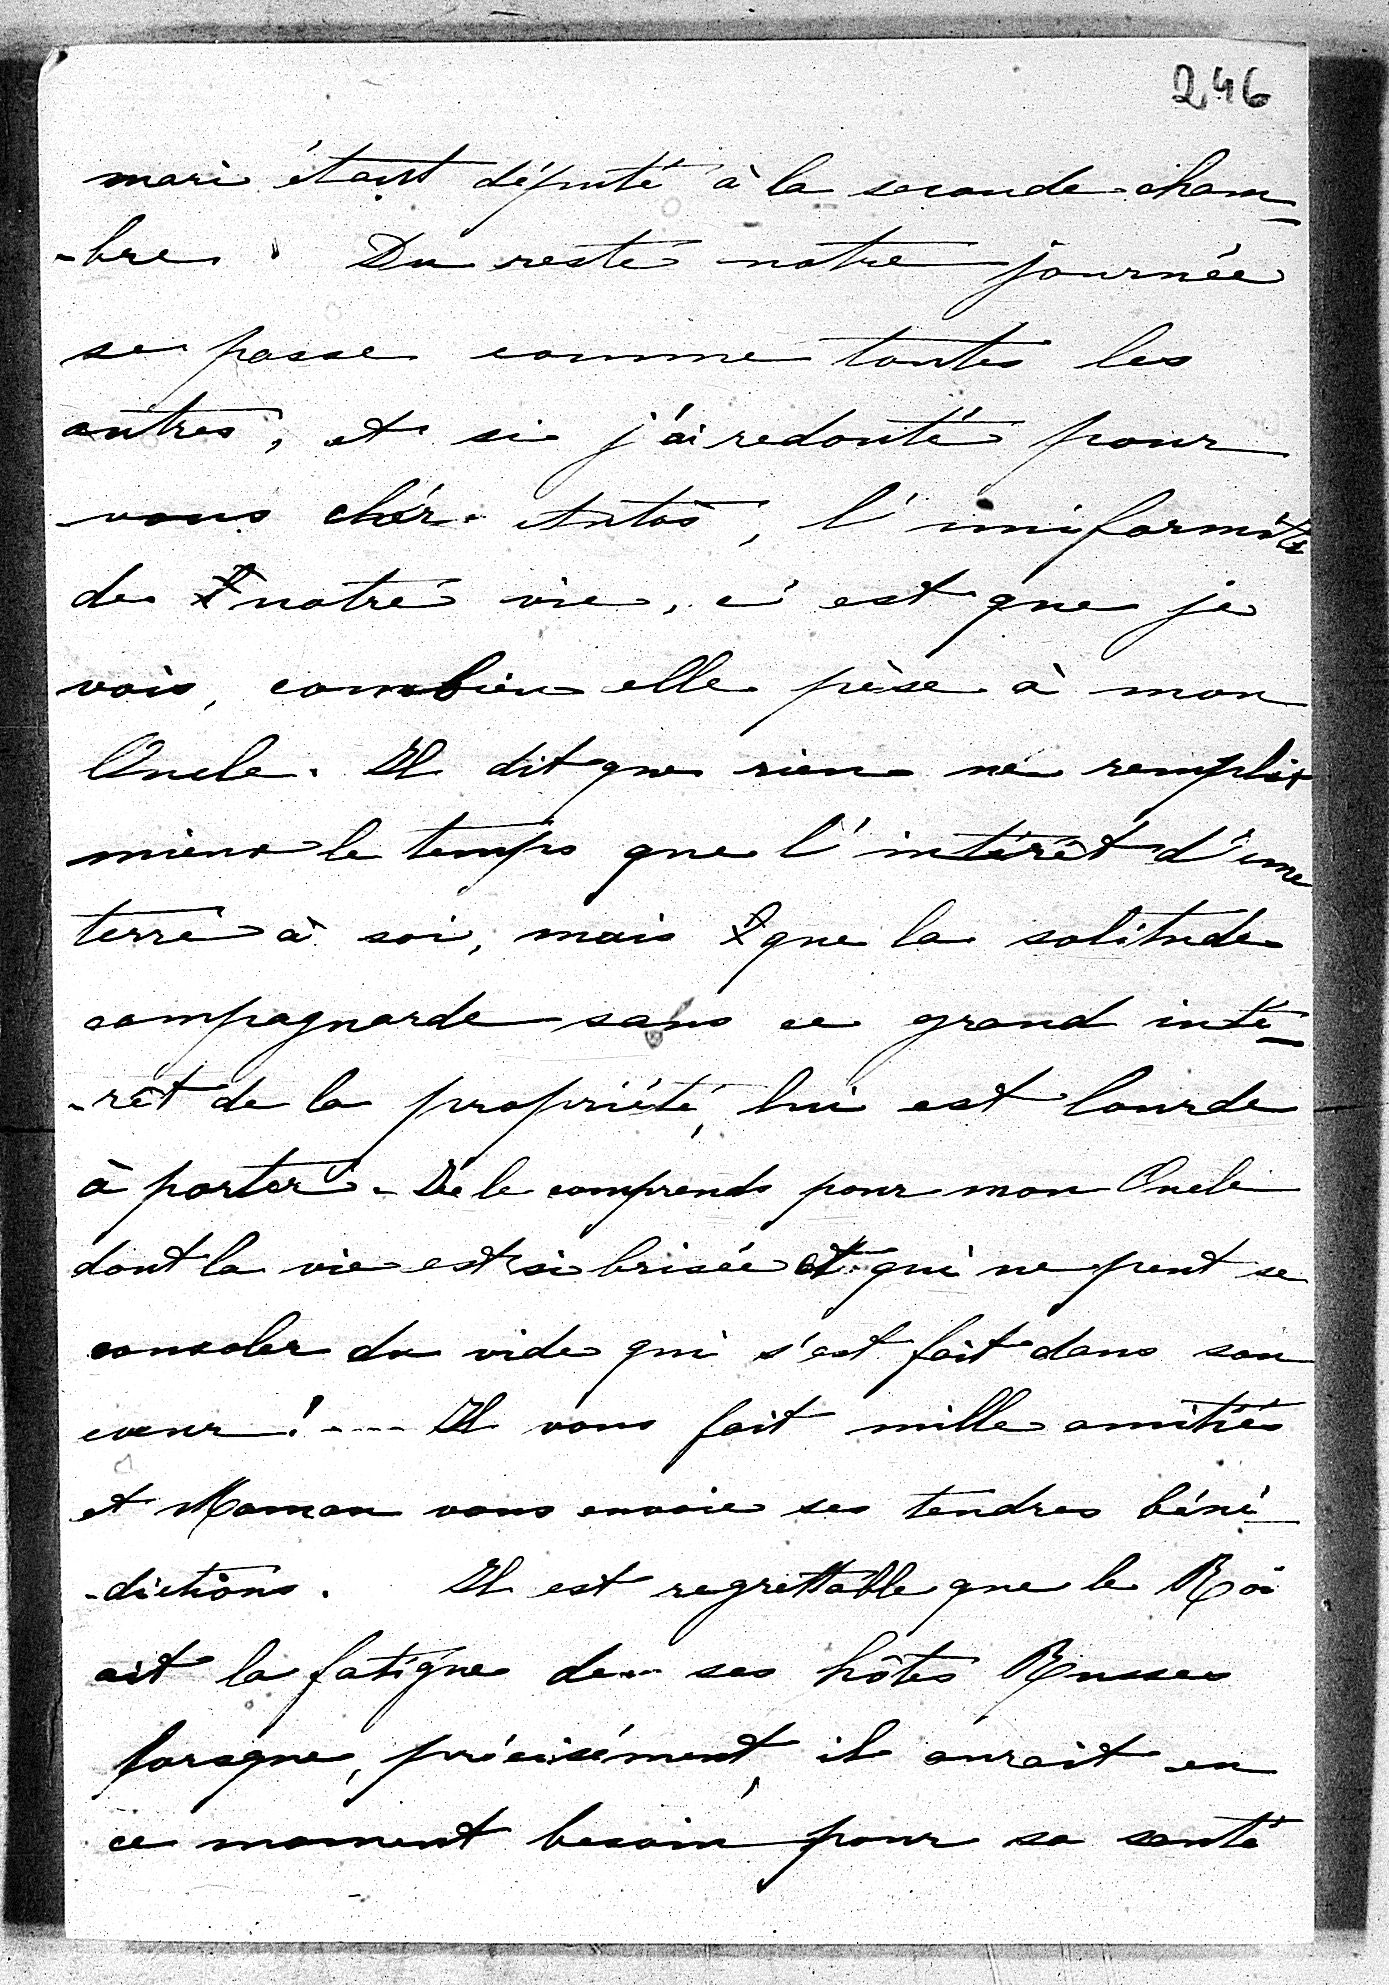 246
mari était député à la seconde cham-
-bre. Du reste notre journée
se passe comme toutes les
autres, et si j'ai redouté pour
vous chér. Antós, l'uniformité
de notre vie, c'est que je
vois, combien elle pèse à mon
Oncle. Il dit que rien ne remplit
mieux le temps que l'intérêt d'une
terre à soi, mais que la solitude
campagnarde sans ce grand inté-
-rêt de la propriété, lui est lourde
à porter. Je le comprends pour mon Oncle
dont la vie est si brisée et qui ne peut se
consoler du vide qui s'est fait dans son
cœur!.... Il vous fait mille amitiés
et Maman vous envoie ses tendres béné-
-dictions. Il est regrettable que le Roi
ait la fatigue de ses hôtes Russes
lorsque, précisément, il aurait eu
ce moment besoin pour sa santé